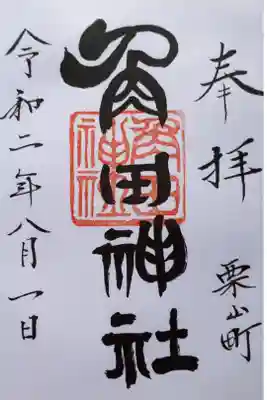 奉拝
栗山町
角田神社
角田
神社
令和二年八月一日